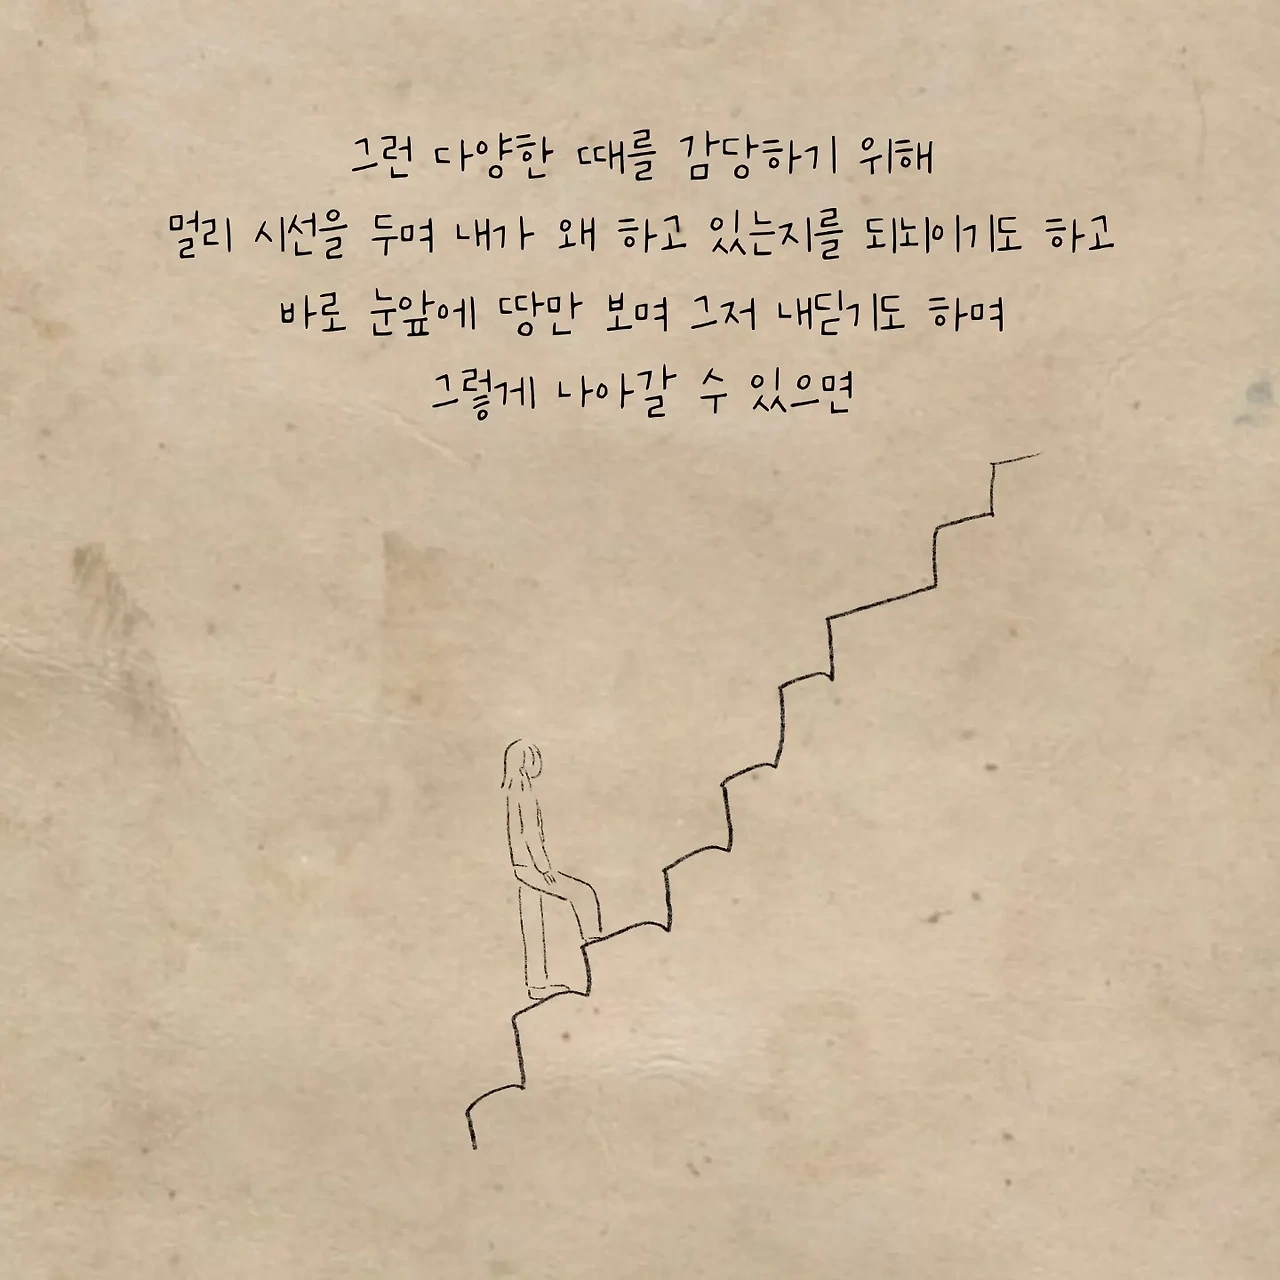 그런 다양한 때를 감당하기 위해
멀리 시선을 두며 내가 왜 하고 있는지를 되뇌이기도 하고
바로 눈앞에 땅만 보며 그저 내딛기도 하며
그렇게 나아갈 수 있으면